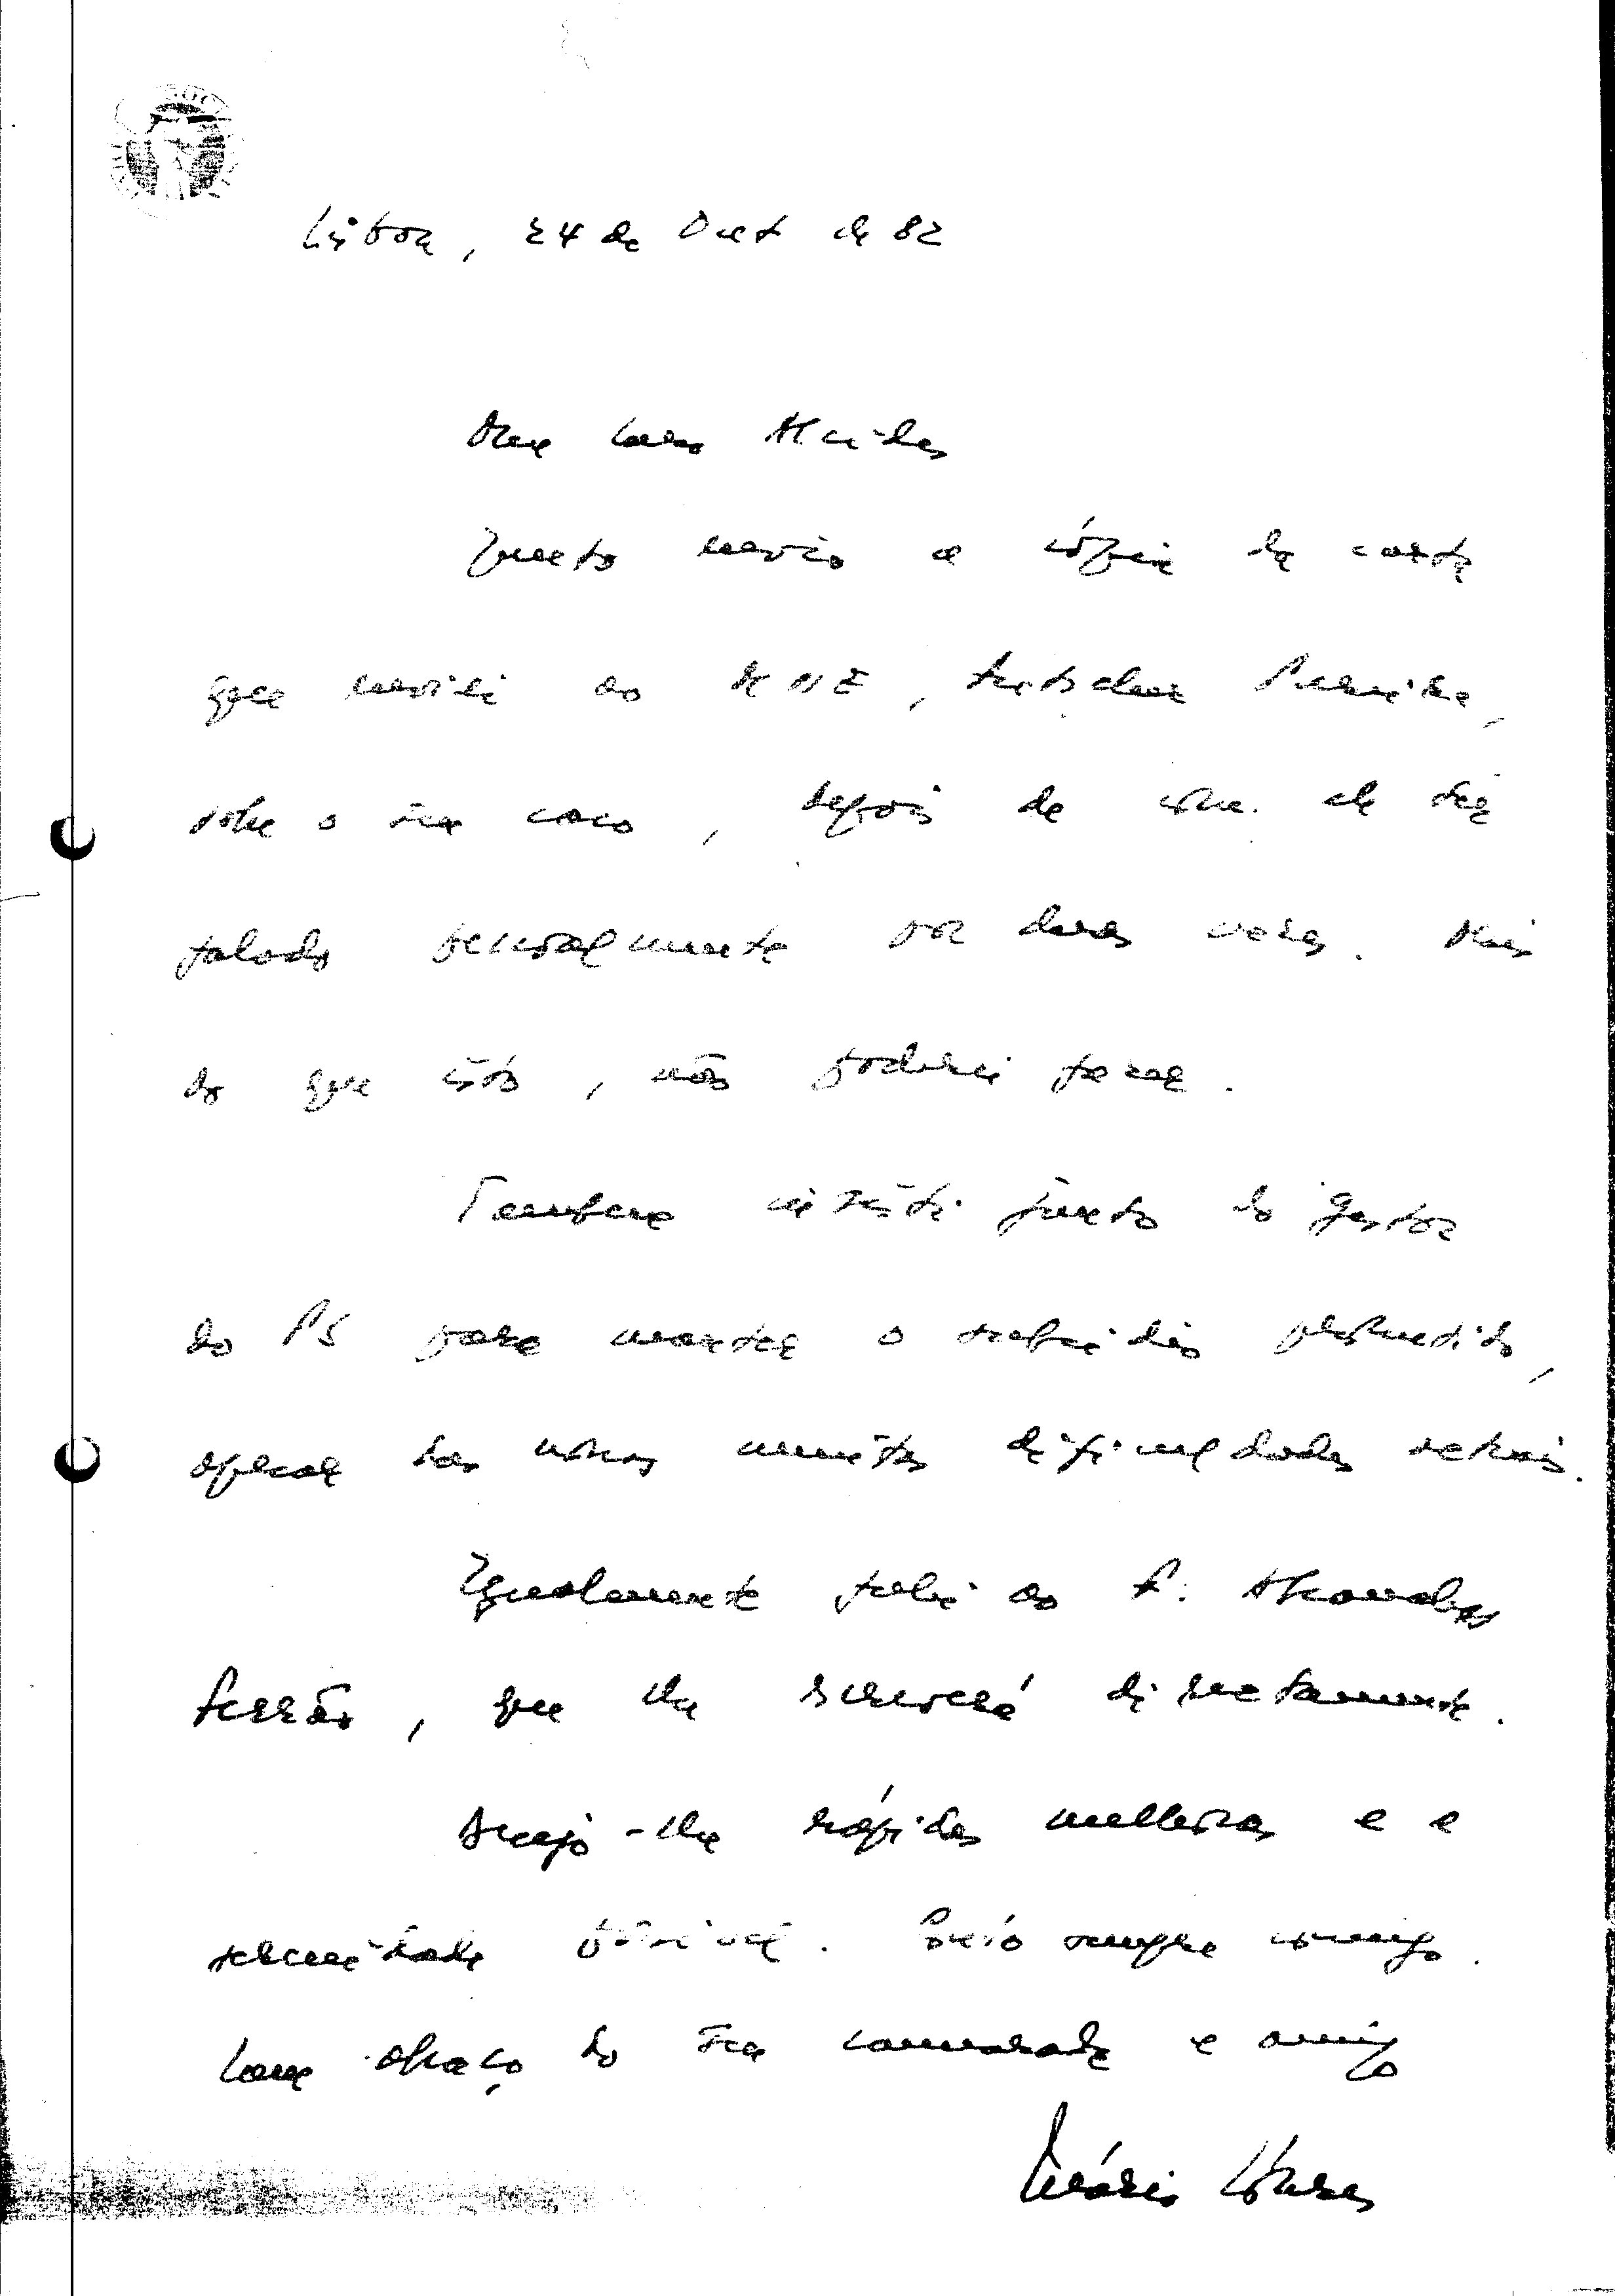 Lisboa, 24 de Out de 82
Meu caro Alcides
Junto envio a cópia da carta
que enviei ao MNE, Futscher Pereira,
sobre o seu caso, depois de com ele ter
falado pessoalmente por duas vezes. Mais
do que isto, não poderei fazer.
Também insisti junto do gestor
do PS para manter o subsídio prometido,
apesar das nossas muitas dificuldades actuais.
Igualmente falei ao F. Abranches
Ferrão, que lhe escreverá directamente.
Desejo-lhe rápidas melhoras e a
serenidade possível. Creio sempre comigo.
Com abraço do seu camarada e amigo
Mário Soares